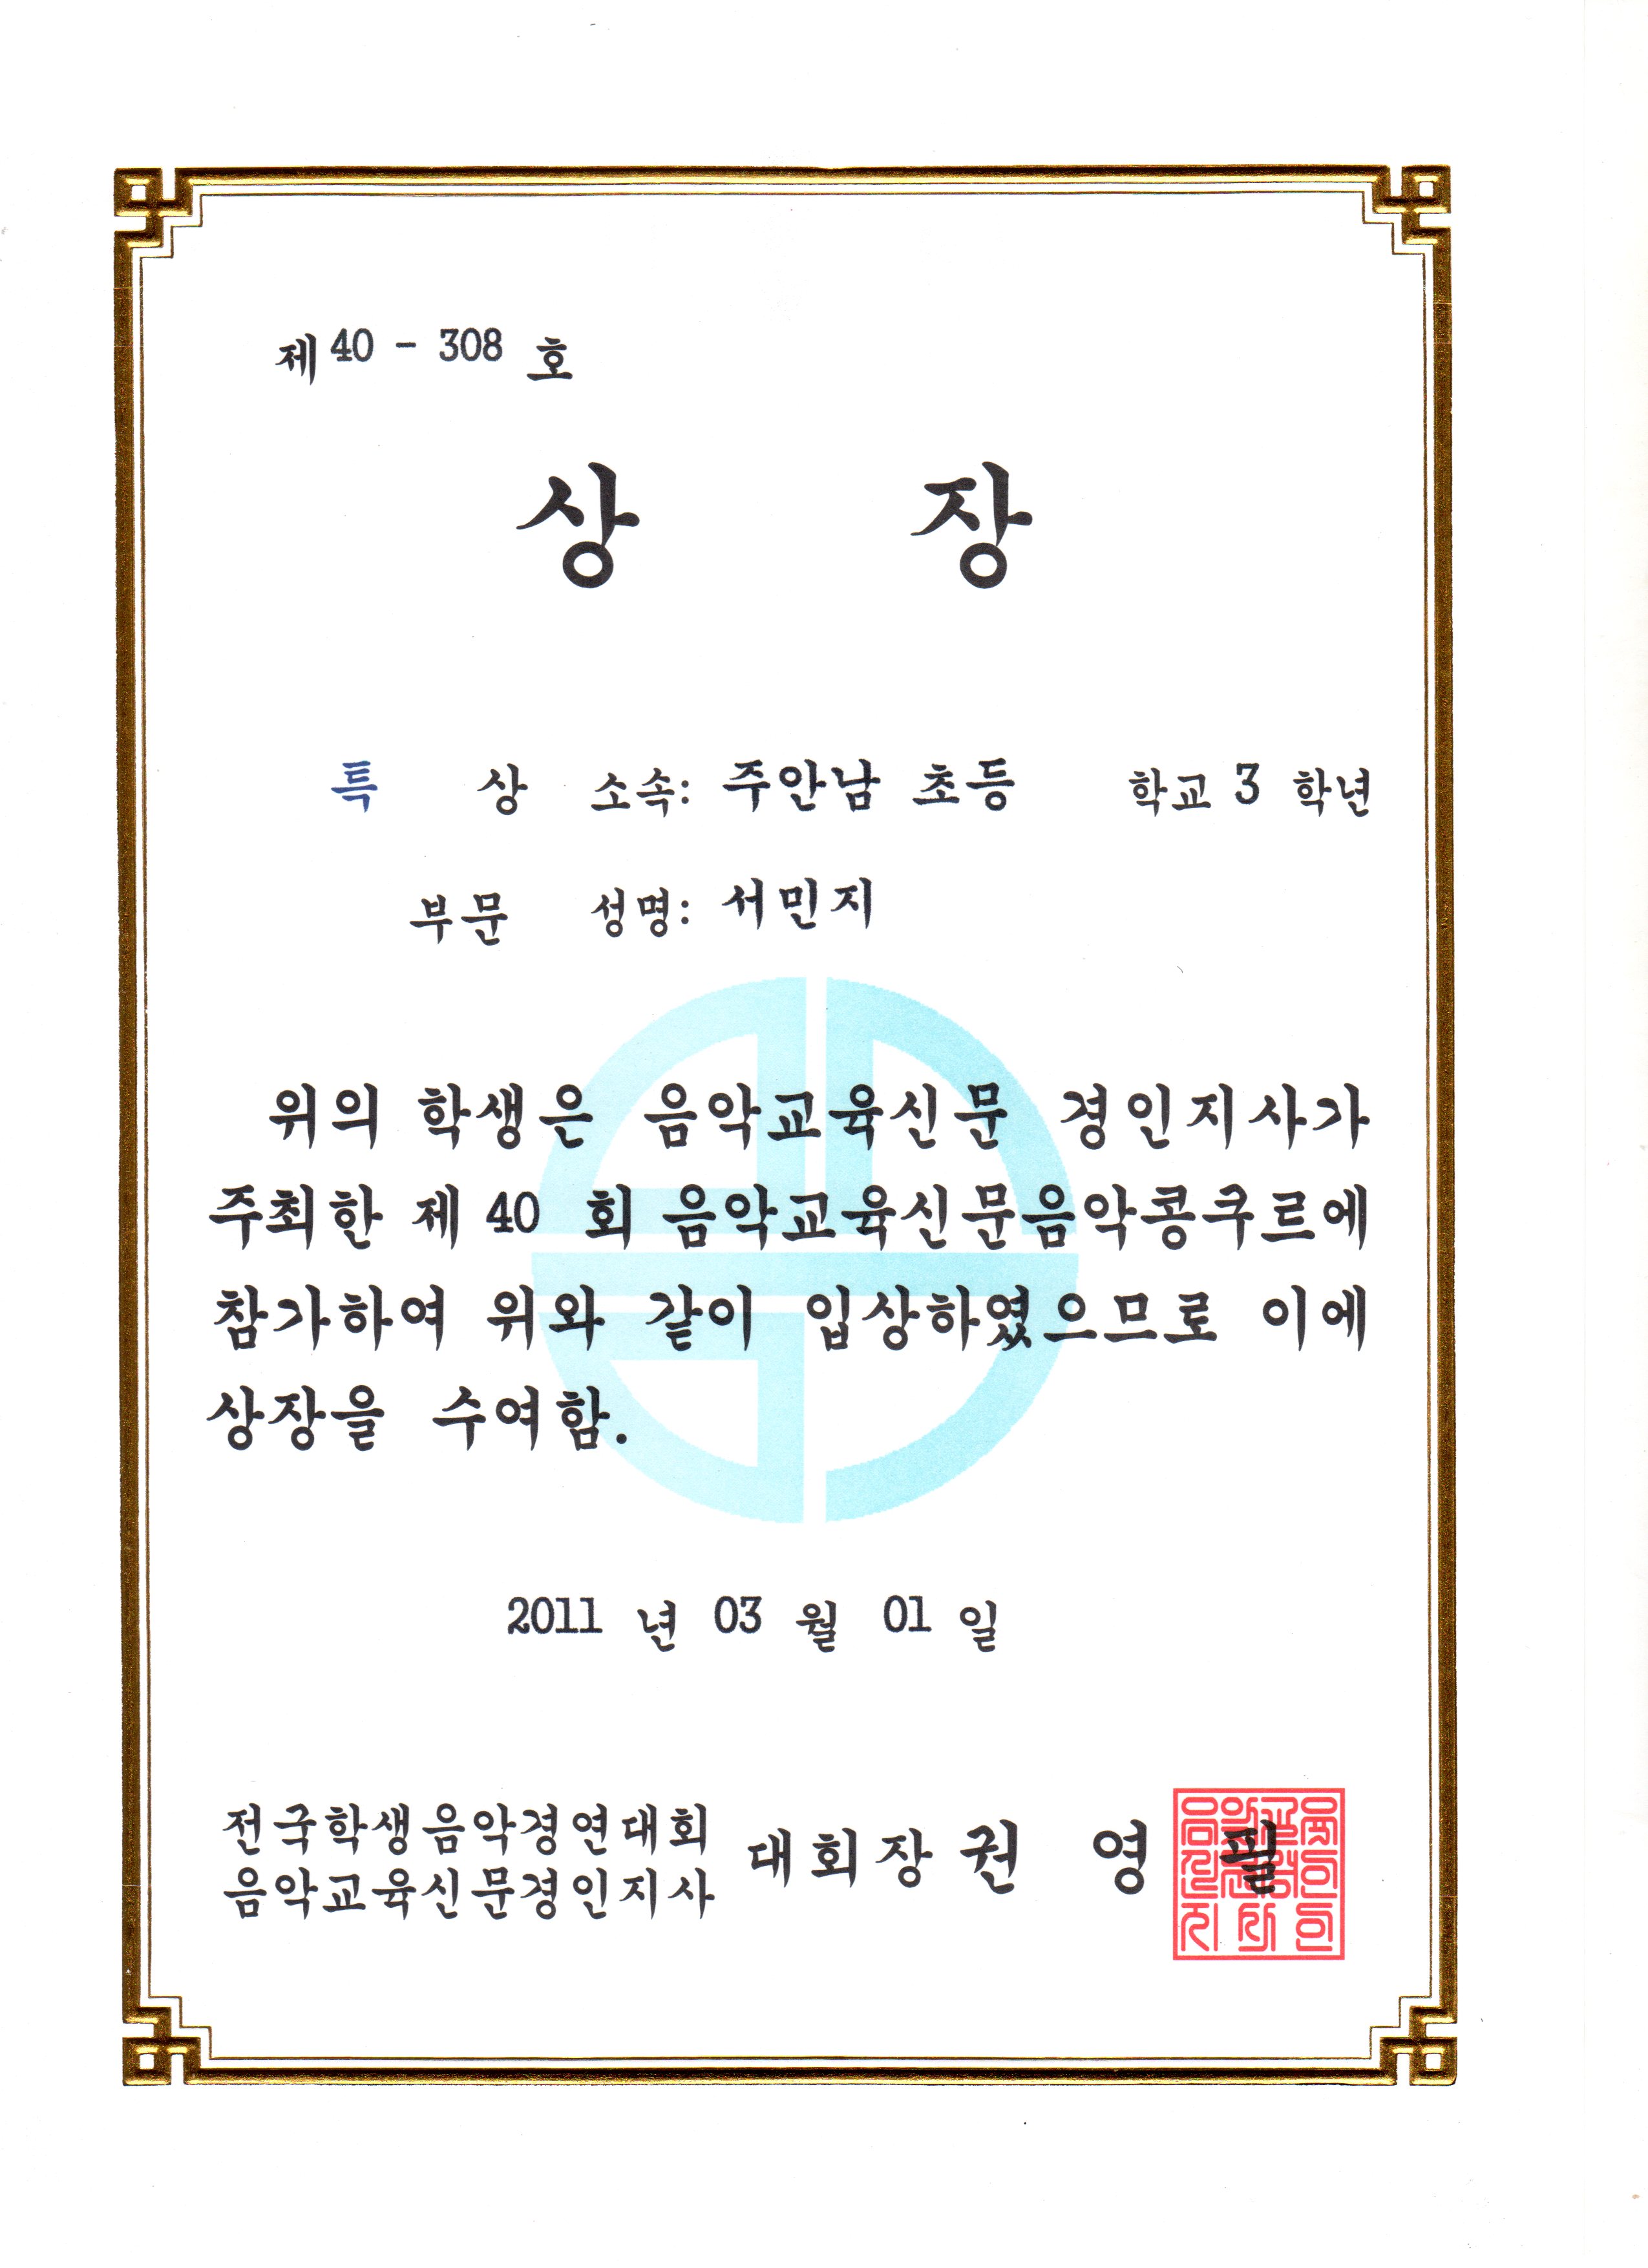 제 40 - 308 호
상 장
특 상 소속: 주안남 초등 학교 3 학년
부문 성명: 서민지
위의 학생은 음악교육신문 경인지사가
주최한 제 40 회 음악교육신문음악콩쿠르에
참가하여 위와 같이 입상하였으므로 이에
상장을 수여함.
2011 년 03 월 01 일
전국학생음악경연대회
음악교육신문경인지사
대회장 권 영 필